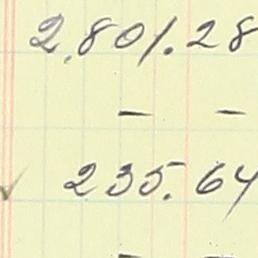 2,801.28
— —
✓ 235.64
— —